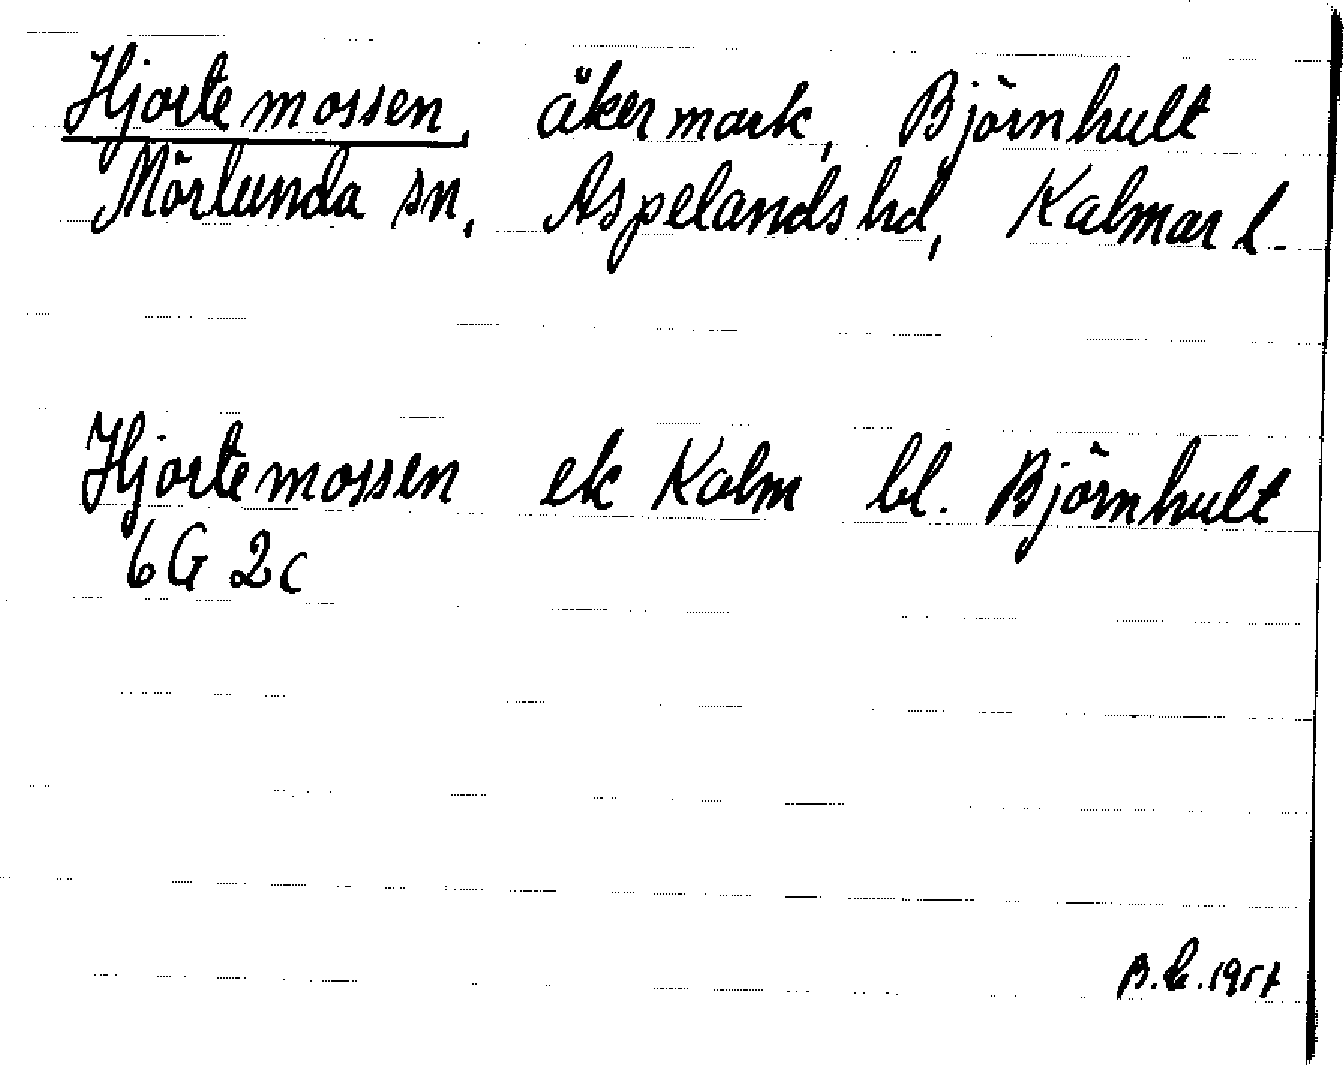 Hjortemossen, åkermark, Björnhult
Mörlunda sn, Aspelands hd, Kalmar l.
Hjortemossen ek Kalm bl. Björnhult
6G 2c
1957